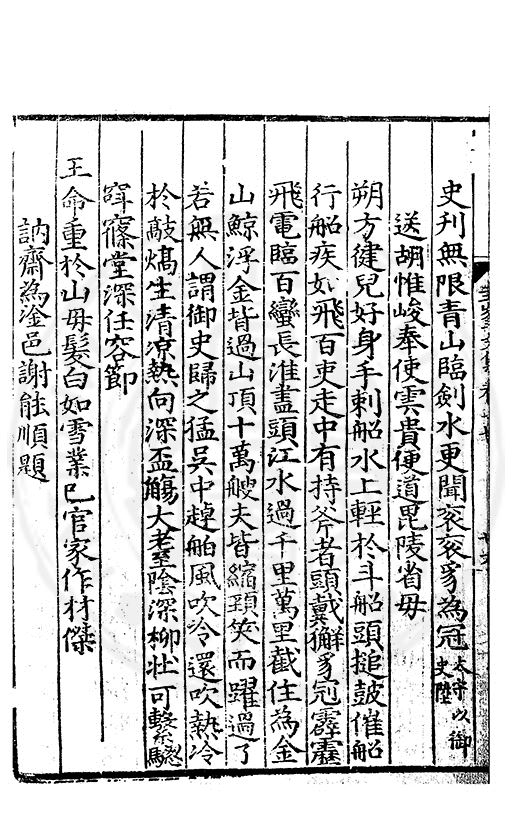 史刋無限青山臨劍水更聞衮衮豸為冠太守以御史陞
送胡惟峻奉使雲貴便道毘陵省母
朔方健兒好身手刺船水上輕於斗船頭搥鼓催船
行船疾如飛百吏走中有持斧者頭戴獬豸冠霹靂
飛電臨百蠻長淮盡頭江水過千里萬里截住為金
山鯨浮金背過山頂十萬艘夫皆縮頸笑而躍過了
若無人謂御史歸之猛吳中趠舶風吹冷還吹熱冷
於敲熇生清凉熱向深盃觴大耋陰深柳壯可繫驄
窈窱堂深任容節
王命重於山母髮白如雪業已官家作材傑
訥齋為淦邑謝能順題